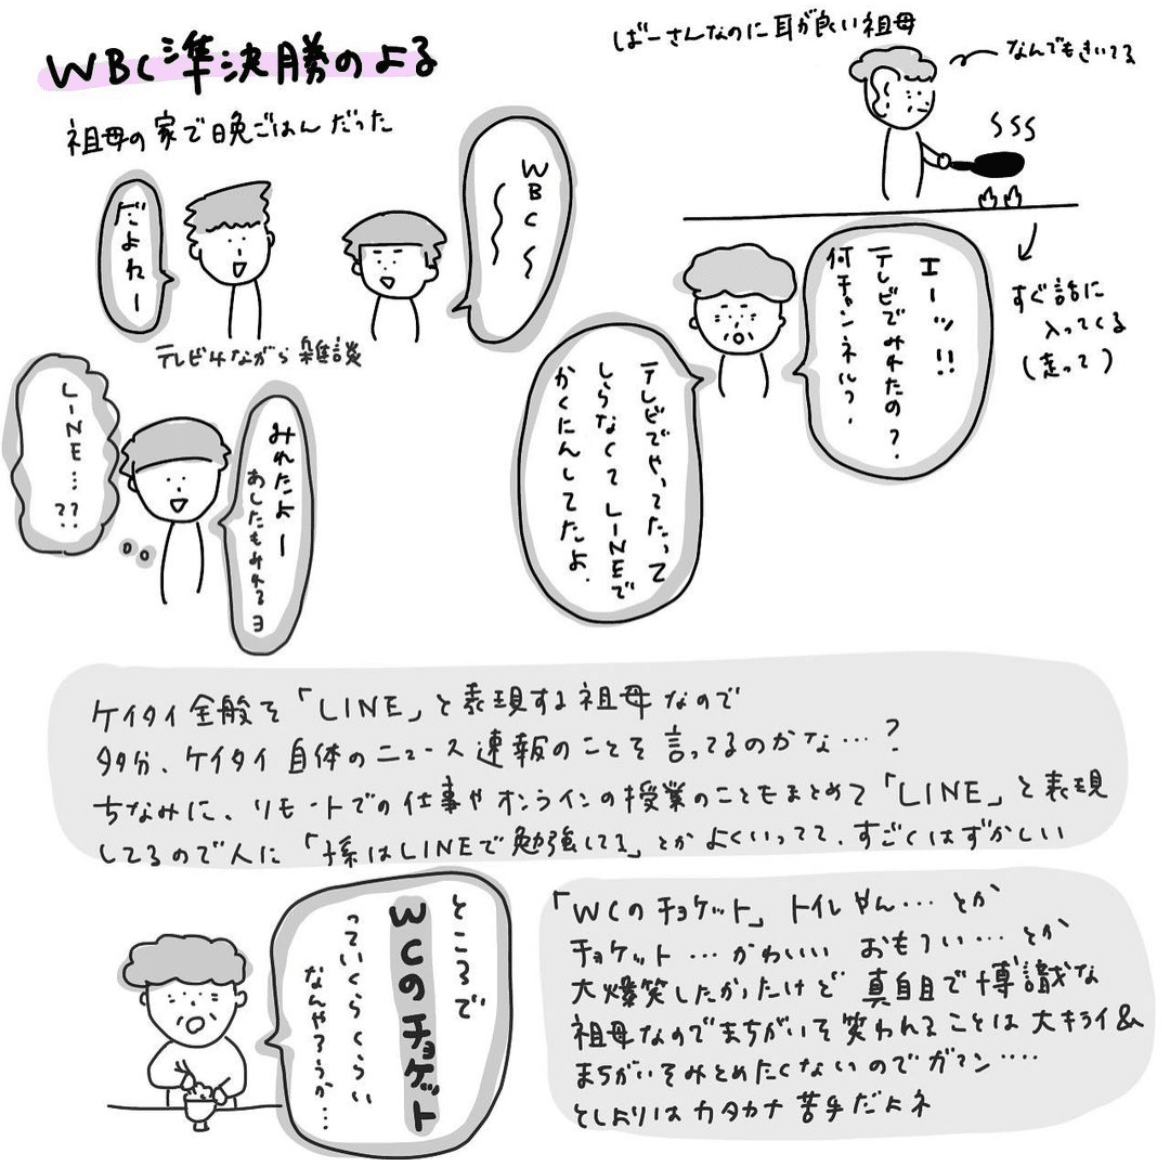 WBC準決勝のよる
祖母の家で晩ごはんだった
WBC〜〜
だよねー
テレビみながら雑談
ばーさんなのに耳が良い祖母
なんでもきいてる
すぐ話に
入ってくる
(走って)
エーッ!!
テレビでみれたの?
何チャンネル?
テレビでやってたって
しらなくてLINEで
かくにんしてたよ.
みれたよー
あしたもみれるヨ
LINE…??
ケイタイ全般を「LINE」と表現する祖母なので
多分、ケイタイ自体のニュース速報のことを言ってるのかな…?
ちなみに、リモートでの仕事やオンラインの授業のこともまとめて「LINE」と表現
してるので人に「孫はLINEで勉強してる」とかよくいってて、すごくはずかしい
ところで
WCのチョケット
っていくらくらい
なんやろうか…
「WCのチョケット」トイレやん…とか
チョケット…かわいい おもろい…とか
大爆笑したかったけど真面目で博識な
祖母なのでまちがいを笑われることは大キライ&
まちがいをみとめたくないのでガマン….
としよりはカタカナ苦手だよネ